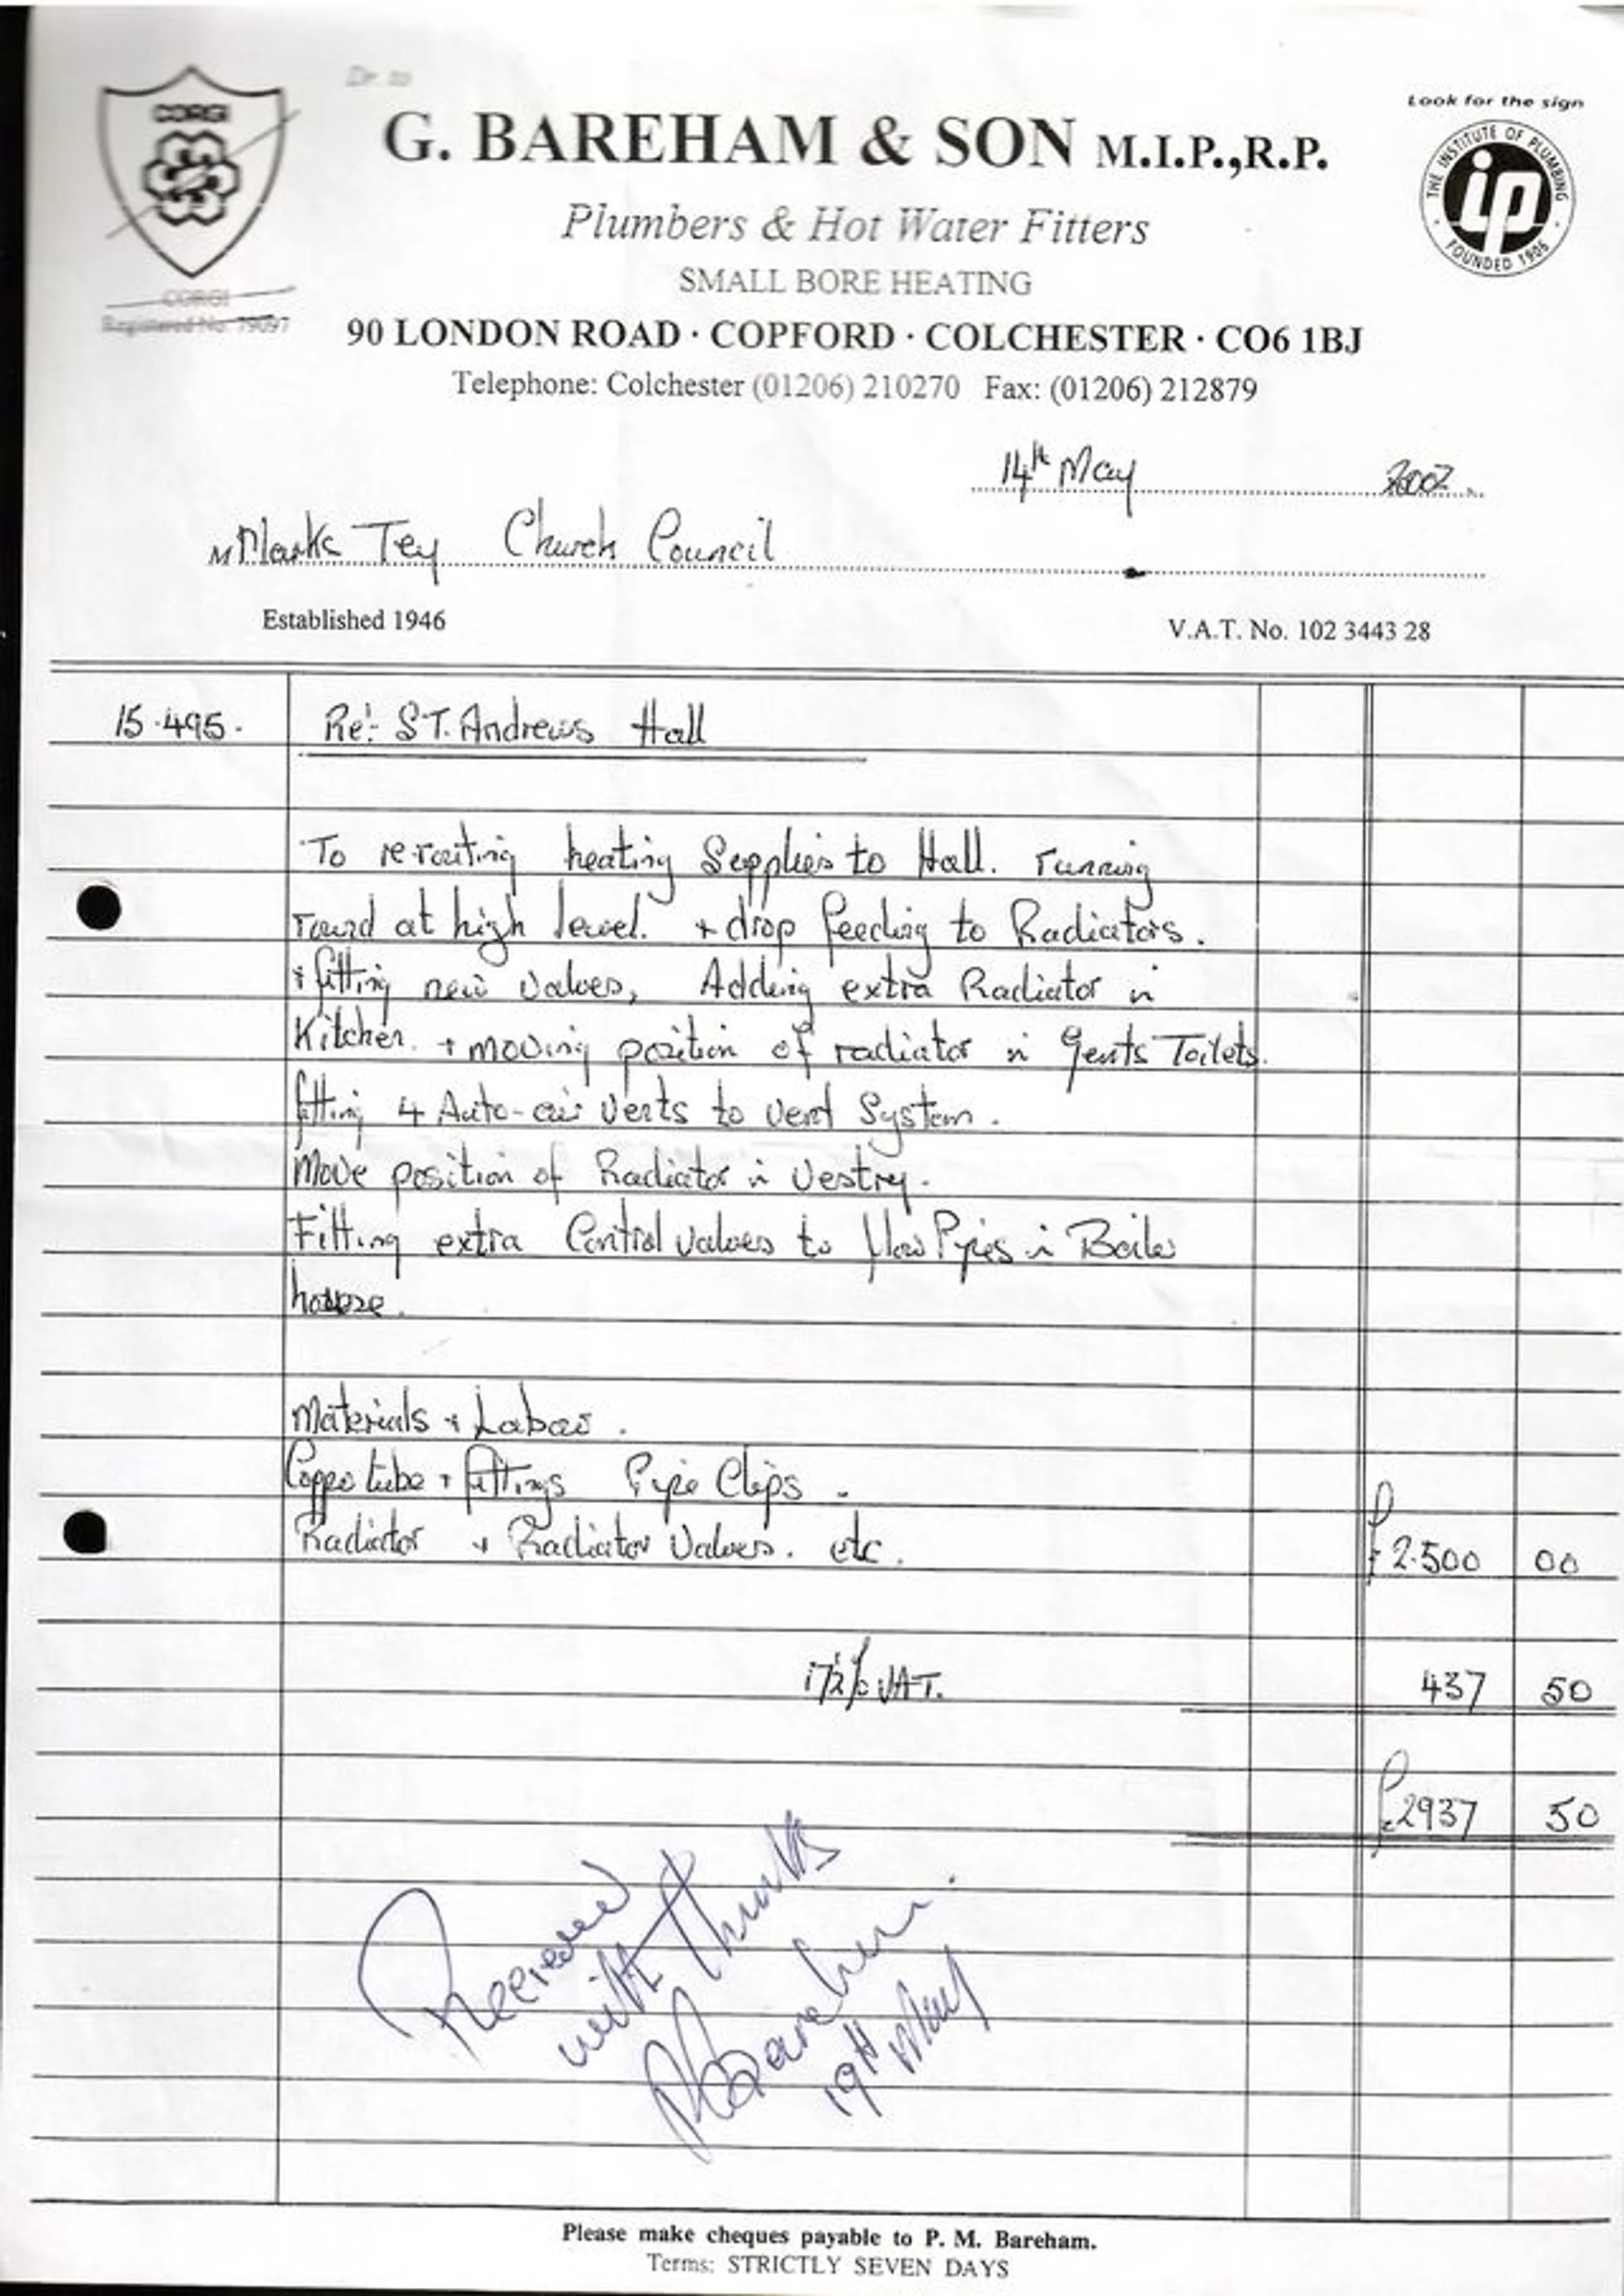 Dr to
CORGI
G. BAREHAM & SON M.I.P.,R.P.
Look for the sign
THE INSTITUTE OF PLUMBING
ip
FOUNDED 1906
Plumbers & Hot Water Fitters
SMALL BORE HEATING
CORGI
Registered No. 79097
90 LONDON ROAD · COPFORD · COLCHESTER · CO6 1BJ
Telephone: Colchester (01206) 210270 Fax: (01206) 212879
14th May 2002
M Marks Tey Church Council
Established 1946
V.A.T. No. 102 3443 28
15.495. Re:- ST. Andrews Hall
To rerouting heating Supplies to Hall. running
round at high level. + drop feeding to Radiators.
+ fitting new valves, Adding extra Radiator in
Kitchen. + moving position of radiator in Gents Toilets.
fitting 4 Auto-air vents to vent System.
Move position of Radiator in Vestry.
Fitting extra Control valves to flow Pipes in Boiler
house.
Materials + Labour.
Copper tube + fittings Pipe Clips.
Radiator + Radiator Valves. etc. £2.500 00
17½% VAT. 437 50
£2937 50
Received
with thanks
Bareham.
19th May
Please make cheques payable to P. M. Bareham.
Terms: STRICTLY SEVEN DAYS